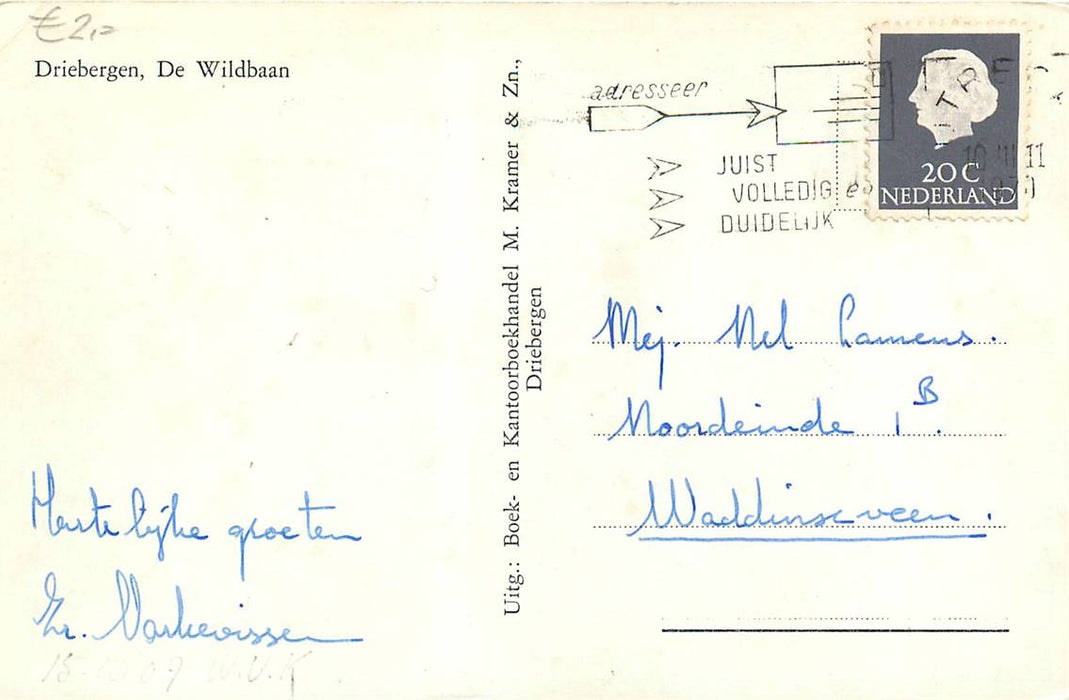 €2,=
Driebergen, De Wildbaan
Uitg.: Boek- en Kantoorboekhandel M. Kramer & Zn.,
Driebergen
adresseer
JUIST
VOLLEDIG en
DUIDELIJK
20C
NEDERLAND
Mej. Nel Lamens.
Noordeinde 1B.
Waddinxveen.
Hartelijke groeten
Zr. Varkevisser